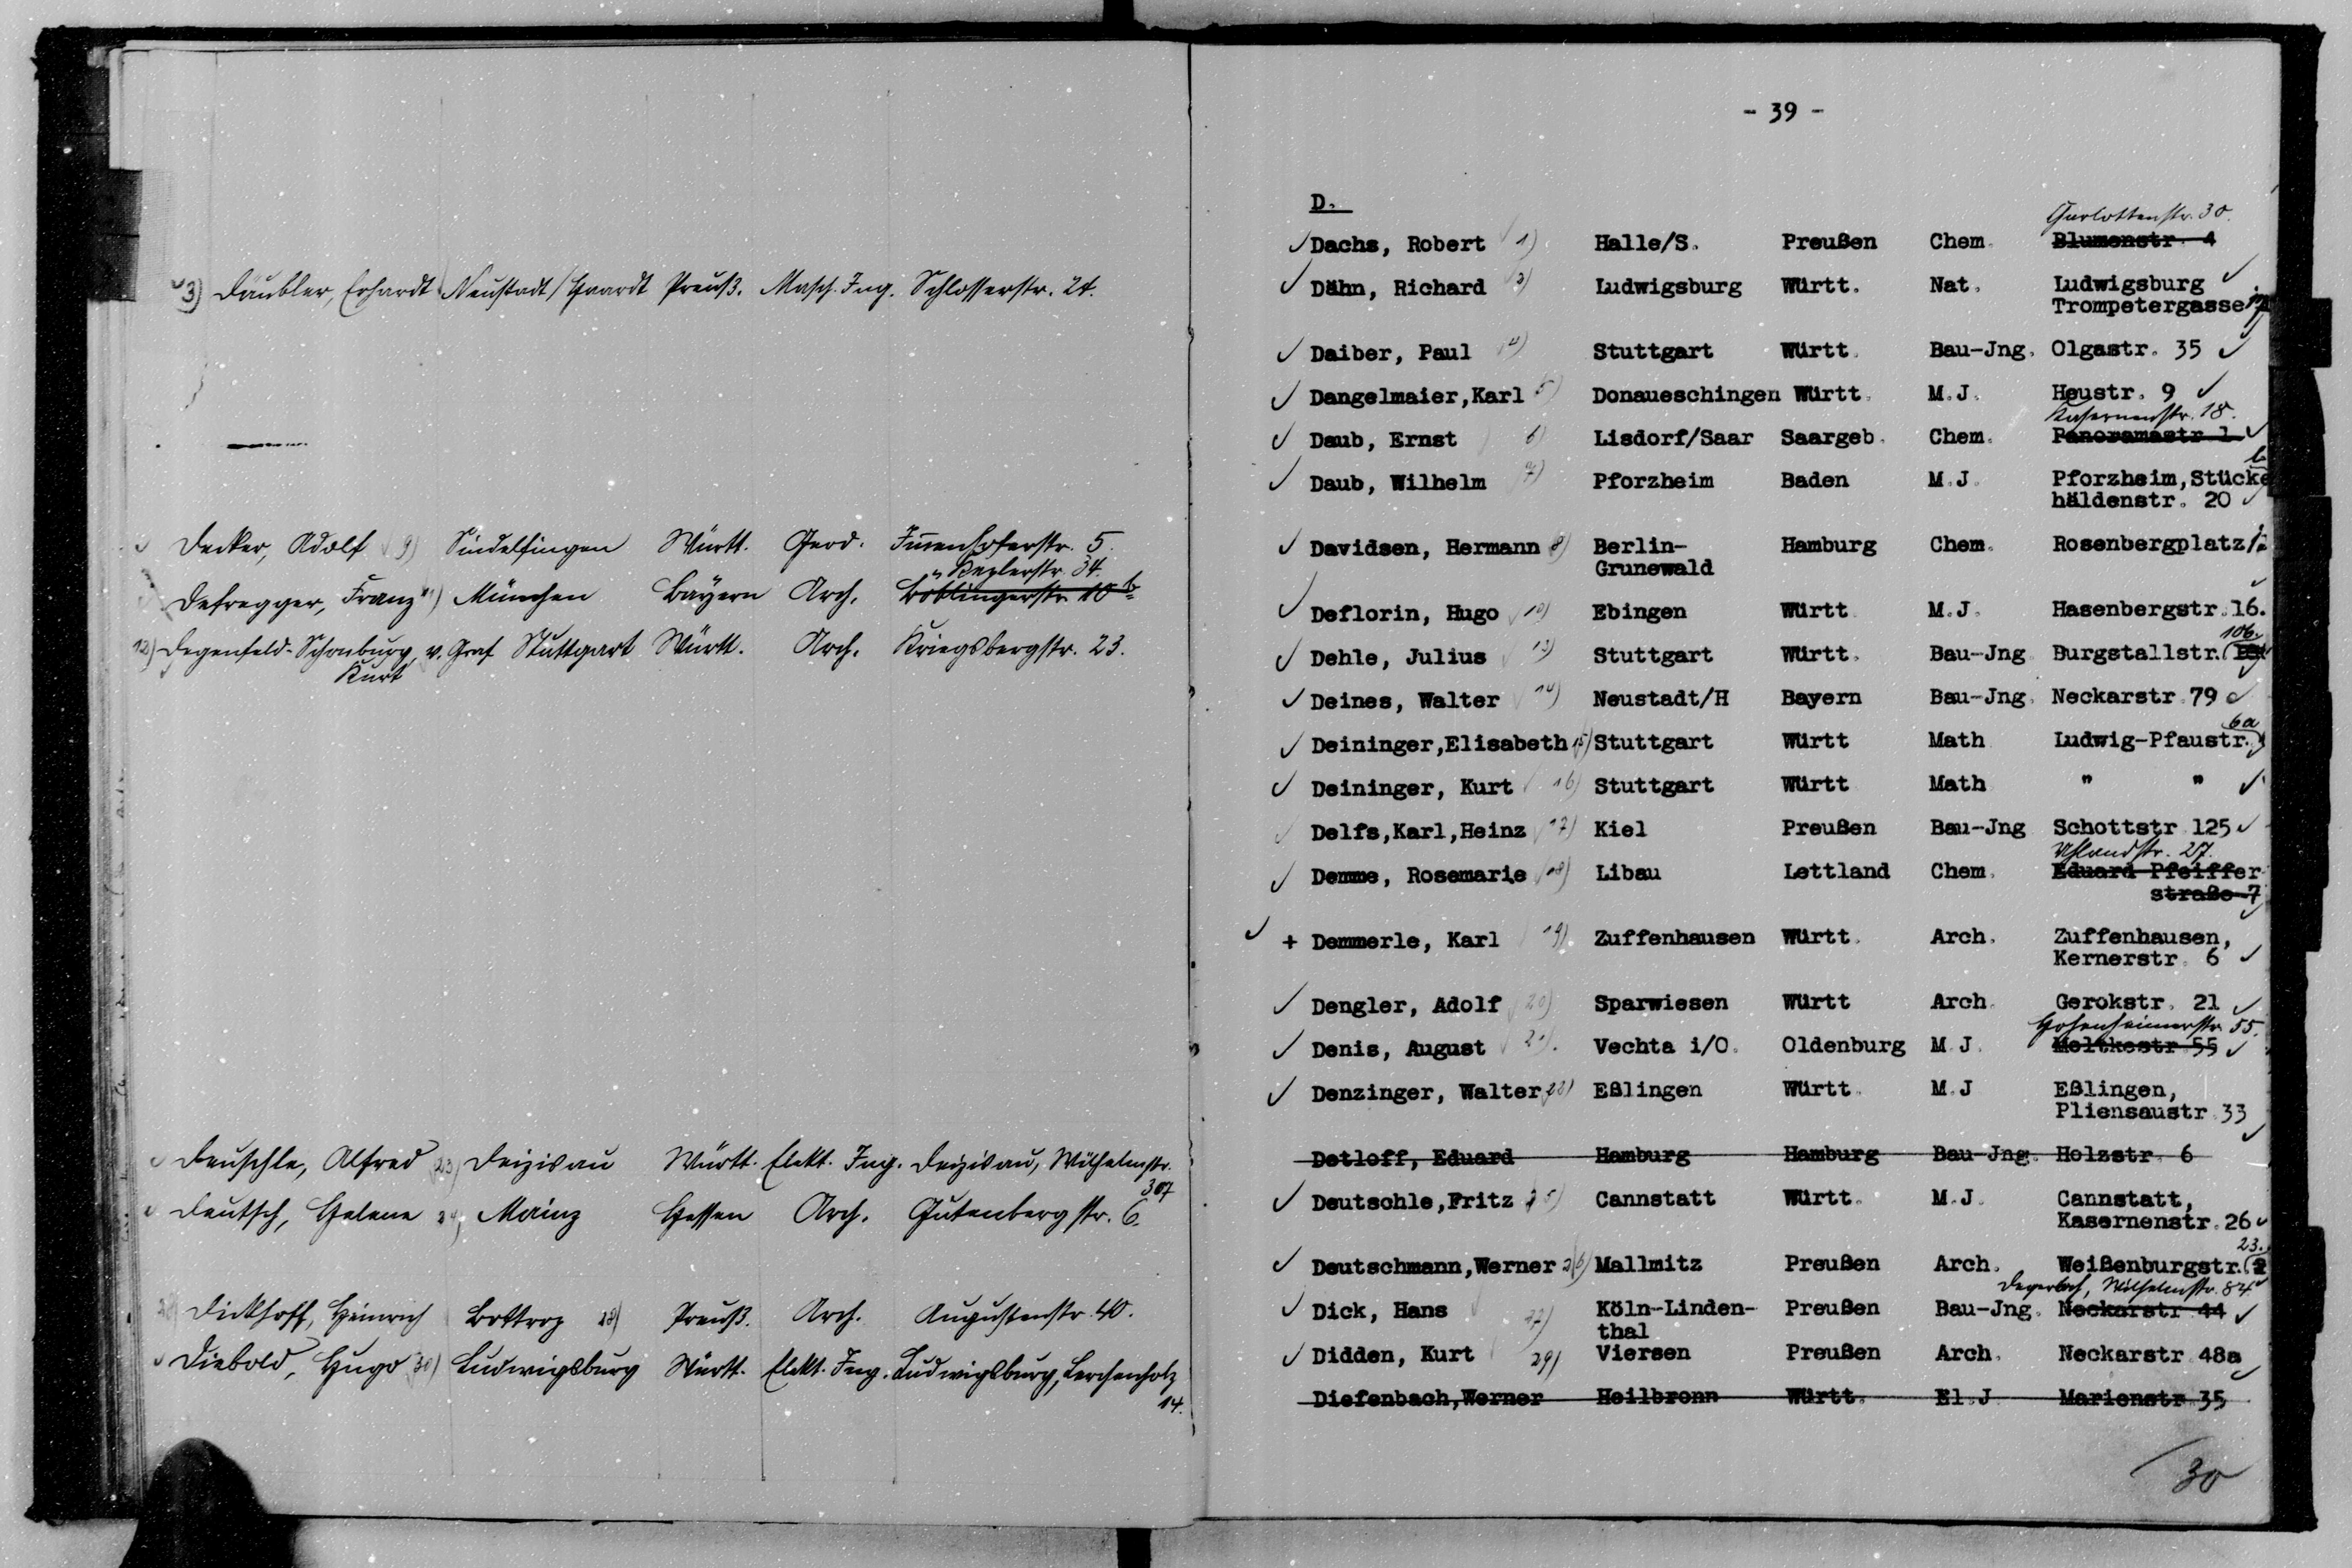 3) Däubler, Erhardt Neustadt/Haardt Preuß. Masch. Ing. Schlosserstr. 24.
Decker, Adolf 9) Sindelfingen Württ. Geod. Immenhoferstr. 5.
Keplerstr. 34.
Defregger, Franz 11) München Bayern Arch. Böblingerstr. 10 b
12) Degenfeld-Schonburg, v. Graf Stuttgart Württ. Arch. Kriegsbergstr. 23.
Kurt
Deuschle, Alfred 23) Deizisau Württ. Elekt. Ing. Deizisau, Wilhelmstr.
307
Deutsch, Helene 24) Mainz Hessen Arch. Gutenbergstr. 6.
Dickhoff, Heinrich Bottrop 28) Preuß. Arch. Augustenstr. 40.
Diebold, Hugo 30) Ludwigsburg Württ. Elekt. Ing. Ludwigsburg, Lerchenholz
14.
- 39 -
D.
Charlottenstr. 30.
Dachs, Robert 1) Halle/S. Preußen Chem. Blumenstr. 4
Dähn, Richard 2) Ludwigsburg Württ. Nat. Ludwigsburg
Trompetergasse
Daiber, Paul 4) Stuttgart Württ. Bau-Jng. Olgastr. 35
Dangelmaier,Karl 5) Donaueschingen Württ. M.J. Heustr. 9
Kasernenstr. 18.
Daub, Ernst 6) Lisdorf/Saar Saargeb. Chem. Panoramastr 1
Daub, Wilhelm 7) Pforzheim Baden M.J. Pforzheim,Stücke
häldenstr. 20
Davidsen, Hermann 8) Berlin- Hamburg Chem. Rosenbergplatz
Grunewald
Deflorin, Hugo 10) Ebingen Württ M.J. Hasenbergstr.16.
106.
Dehle, Julius 13) Stuttgart Württ. Bau-Jng Burgstallstr.
Deines, Walter 14) Neustadt/H Bayern Bau-Jng. Neckarstr.79
6a
Deininger,Elisabeth 15) Stuttgart Württ Math Ludwig-Pfaustr.
Deininger, Kurt 16) Stuttgart Württ Math " "
Delfs,Karl,Heinz 17) Kiel Preußen Bau-Jng Schottstr 125
Uhlandstr. 27.
Demme, Rosemarie 18) Libau Lettland Chem. Eduard Pfeiffer
straße 7
+ Demmerle, Karl 19) Zuffenhausen Württ. Arch. Zuffenhausen,
Kernerstr. 6
Dengler, Adolf 20) Sparwiesen Württ Arch. Gerokstr. 21
Hohenheimerstr. 55.
Denis, August 21) Vechta i/O. Oldenburg M.J. Moltkestr 55
Denzinger, Walter 22) Eßlingen Württ. M.J Eßlingen,
Pliensaustr.33
Detloff, Eduard Hamburg Hamburg Bau-Jng. Holzstr. 6
Deutschle,Fritz 25) Cannstatt Württ. M.J. Cannstatt,
Kasernenstr.26
23.
Deutschmann,Werner 26) Mallmitz Preußen Arch. Weißenburgstr. 2
Degerloch, Wilhelmstr. 84.
Dick, Hans 27) Köln-Linden- Preußen Bau-Jng. Neckarstr 44
thal
Didden, Kurt 29) Viersen Preußen Arch. Neckarstr 48a
Diefenbach,Werner Heilbronn Württ. El.J Marienstr 35
30